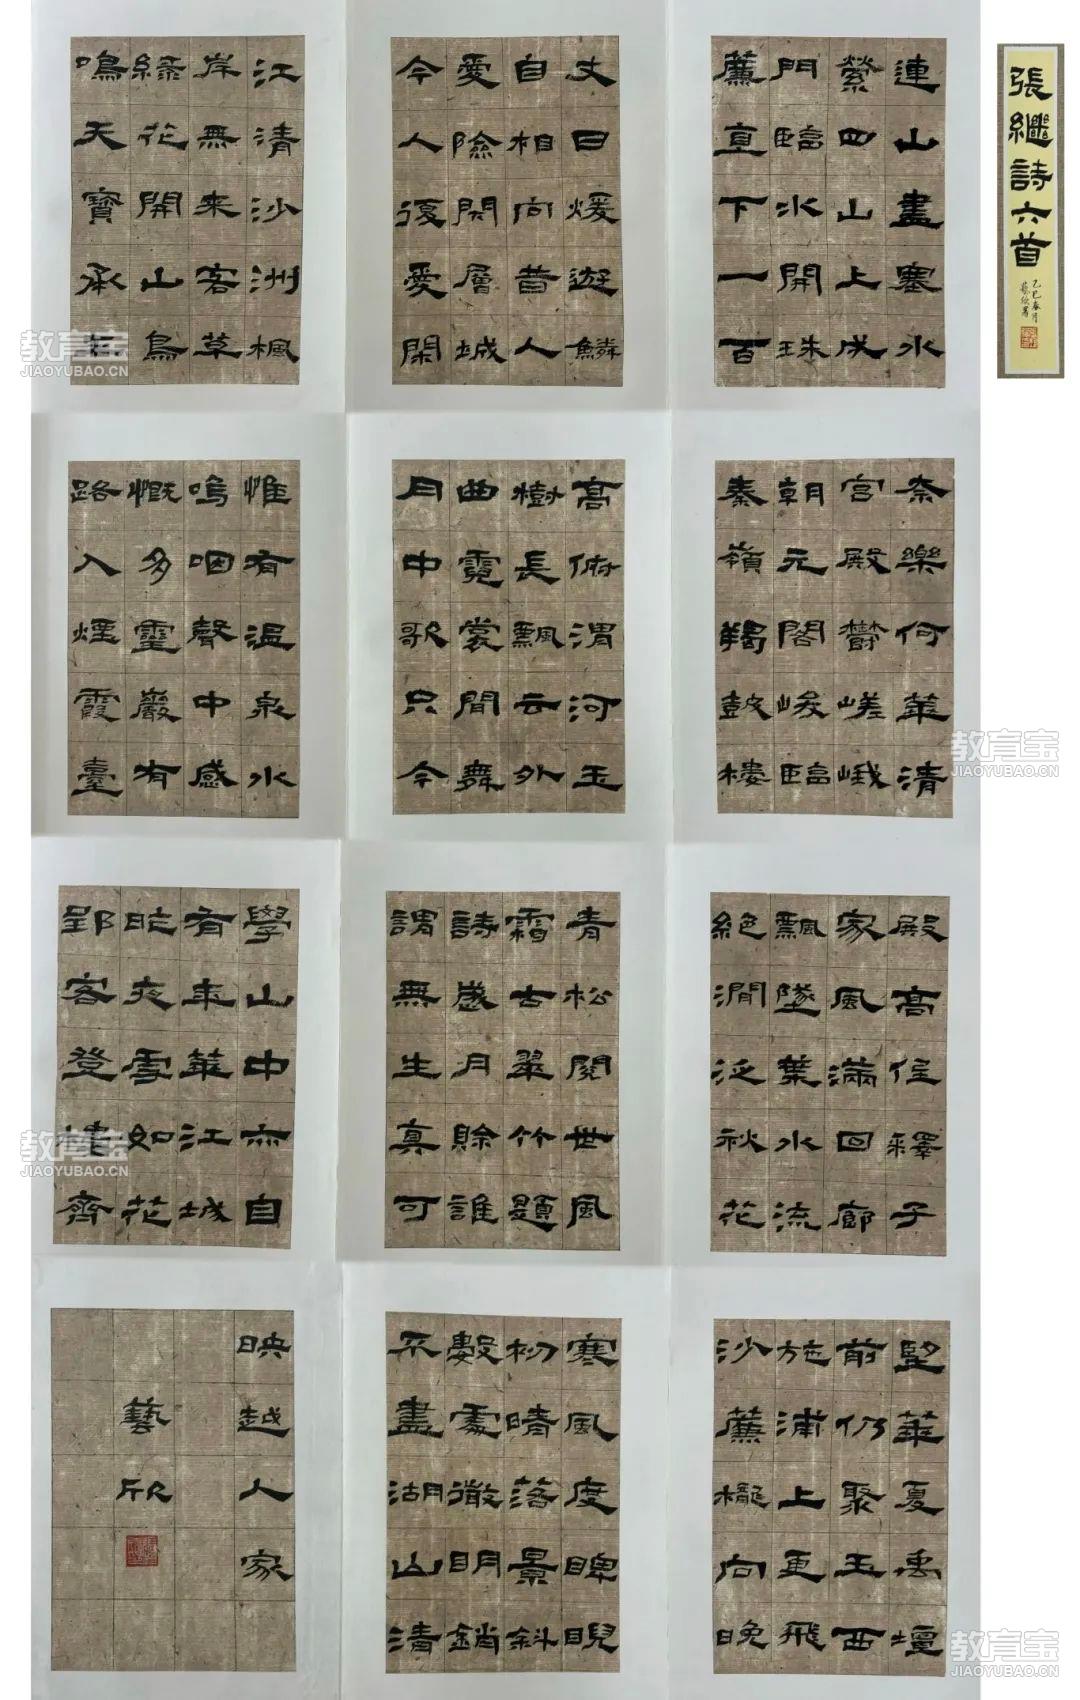 張繼詩六首
乙巳春月
藝欣署
連山盡塞水
縈回山上戍
門臨水開珠
簾直下一百
丈日煖遊鱗
自相向昔人
愛險閉層城
今人復愛閑
江清沙洲楓
岸無来客草
綠花開山鳥
鳴天寶承平
奈樂何華清
宮殿鬱嵯峨
朝元閣峻臨
秦嶺羯鼓樓
高俯渭河玉
樹長飄云外
曲霓裳閒舞
月中歌只今
惟有温泉水
嗚咽聲中感
慨多靈巖有
路入煙霞臺
殿高住釋子
家風滿回廊
飄墜葉水流
絕澗泛秋花
青松閱世風
霜古翠竹題
詩歲月賒誰
謂無生真可
學山中亦自
有年華江城
昨夜雪如花
郢客登樓齊
望華夏禹壇
前仍聚玉西
施浦上更飛
沙簾櫳向晚
寒風度睥睨
初晴落景斜
數處微明銷
不盡湖山清
映越人家
藝欣
教育宝
JIAOYUBAO.CN
教育宝
JIAOYUBAO.CN
教育宝
JIAOYUBAO.CN
教育宝
JIAOYUBAO.CN